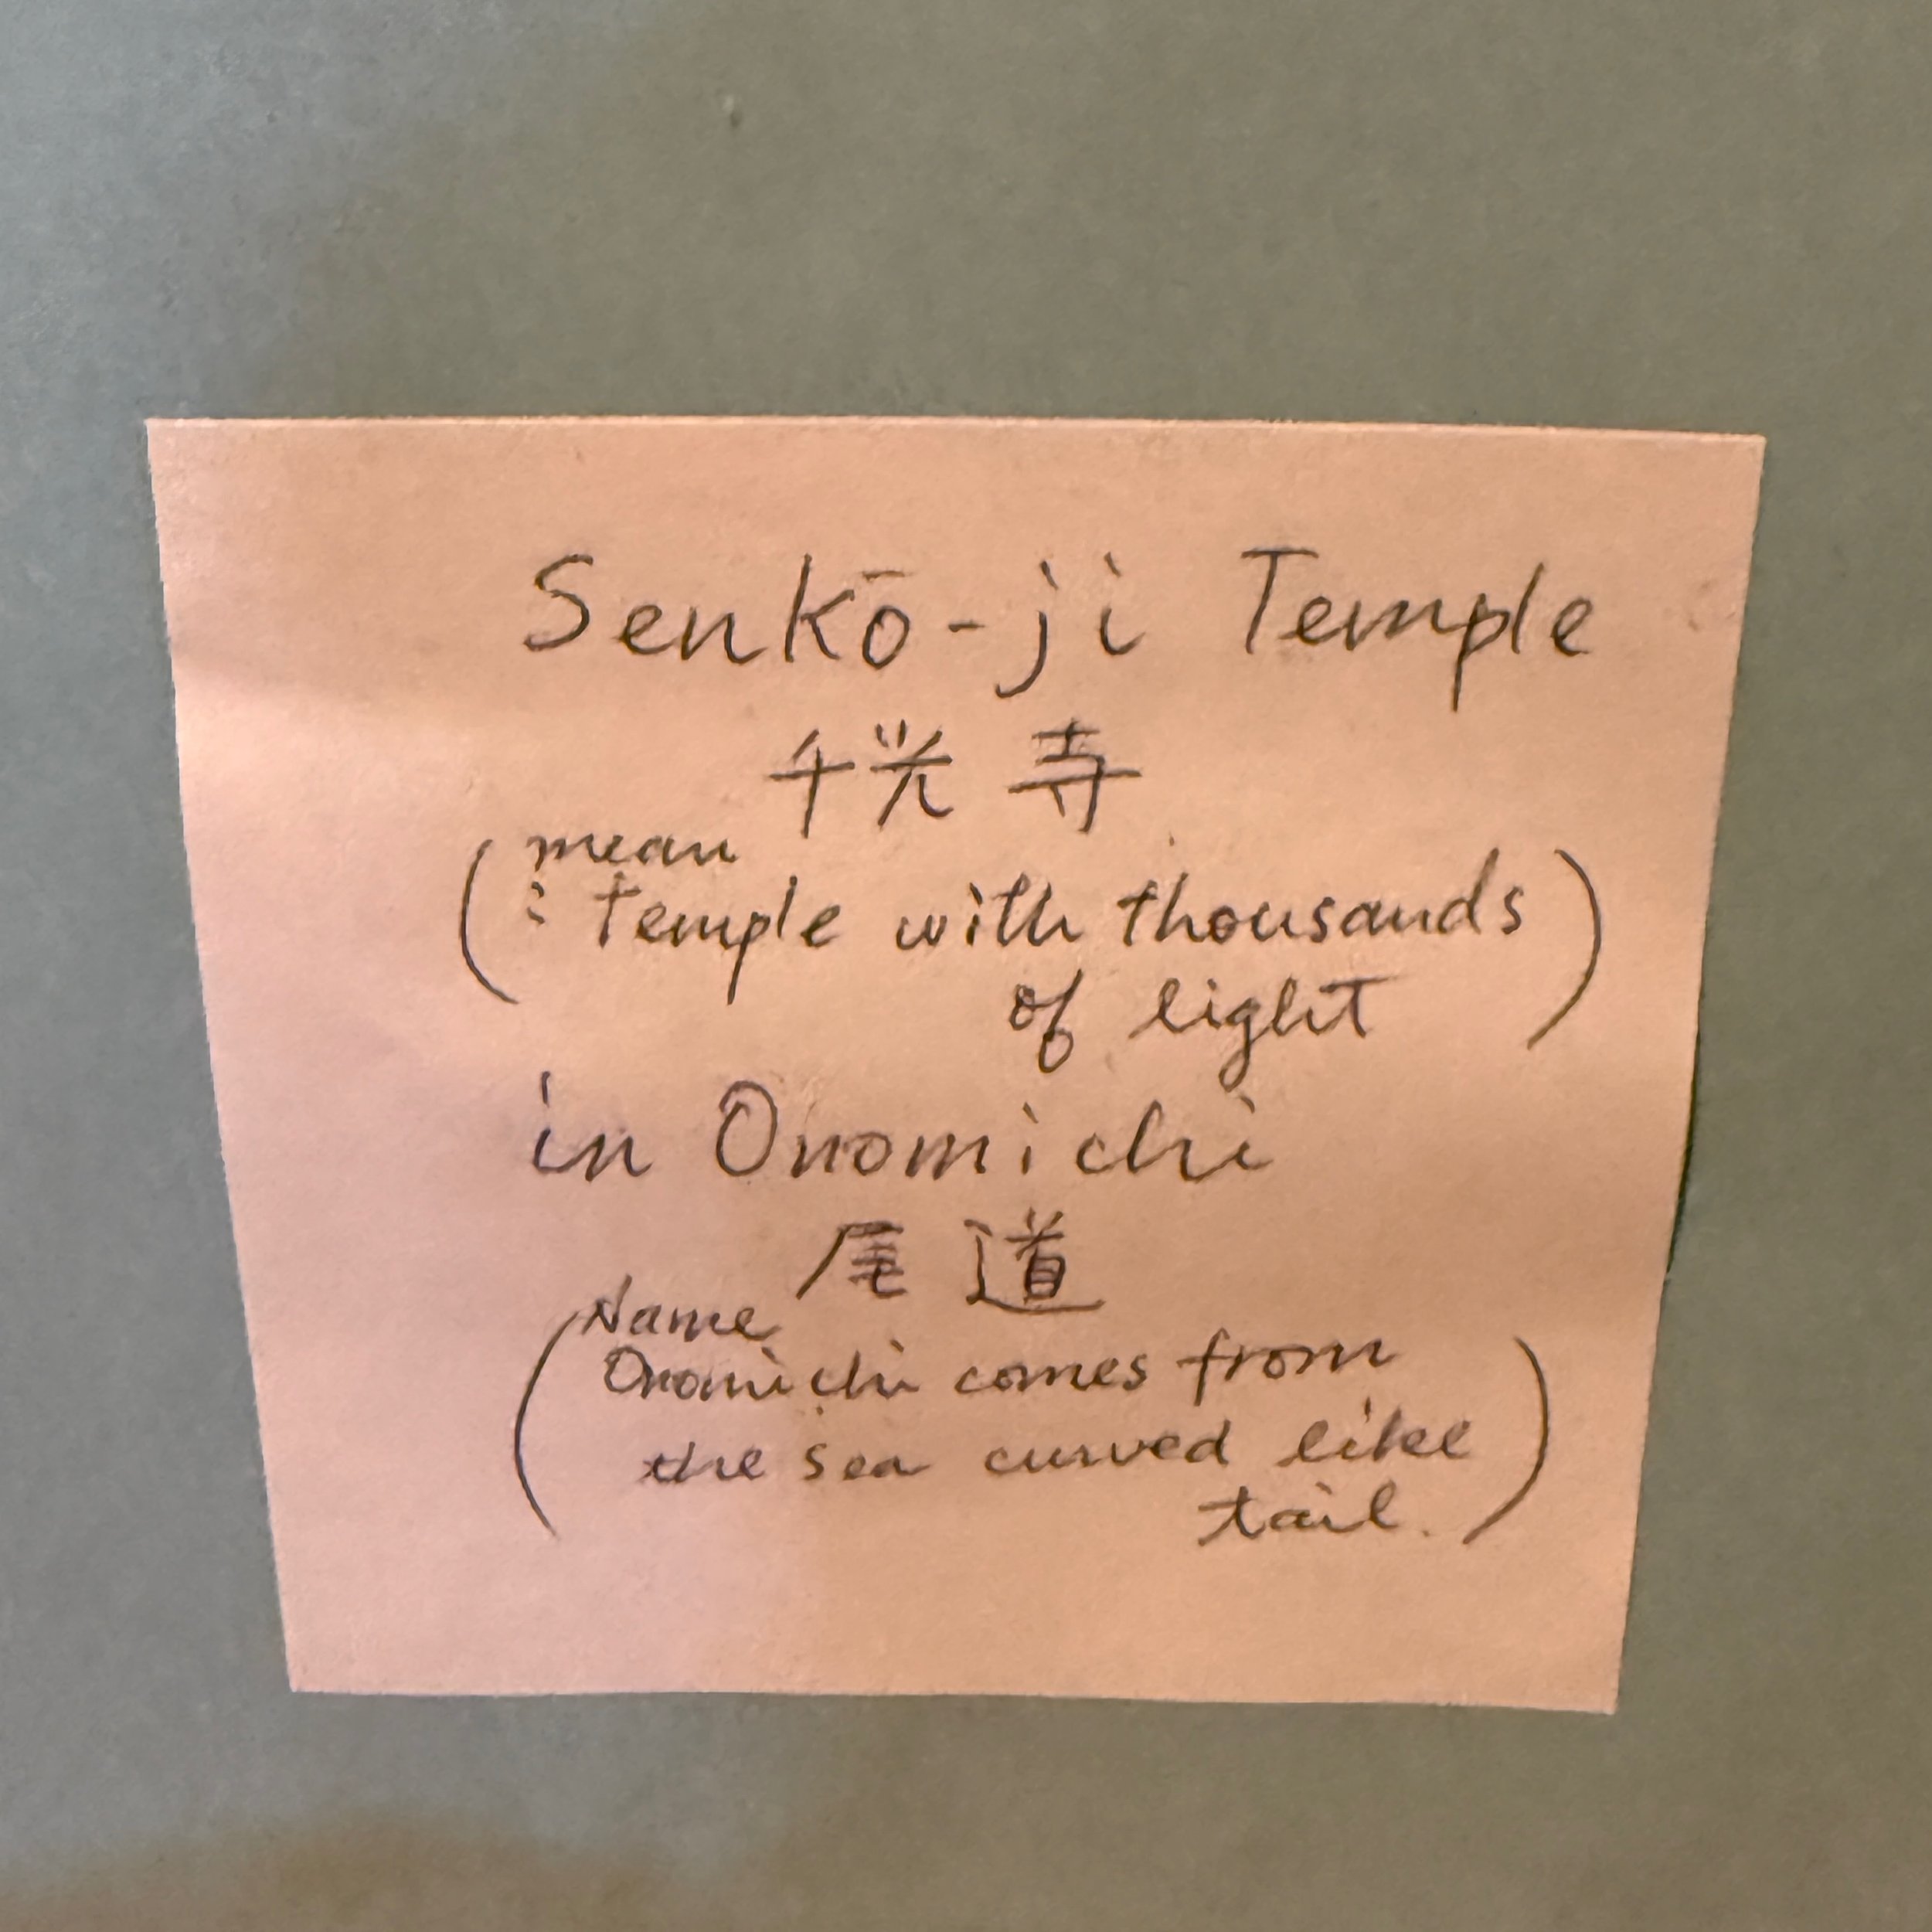 Senkō-ji Temple
千光寺
(mean
: Temple with thousands
of light)
in Onomichi
尾道
(Name
Onomichi comes from
the sea curved like
tail.)